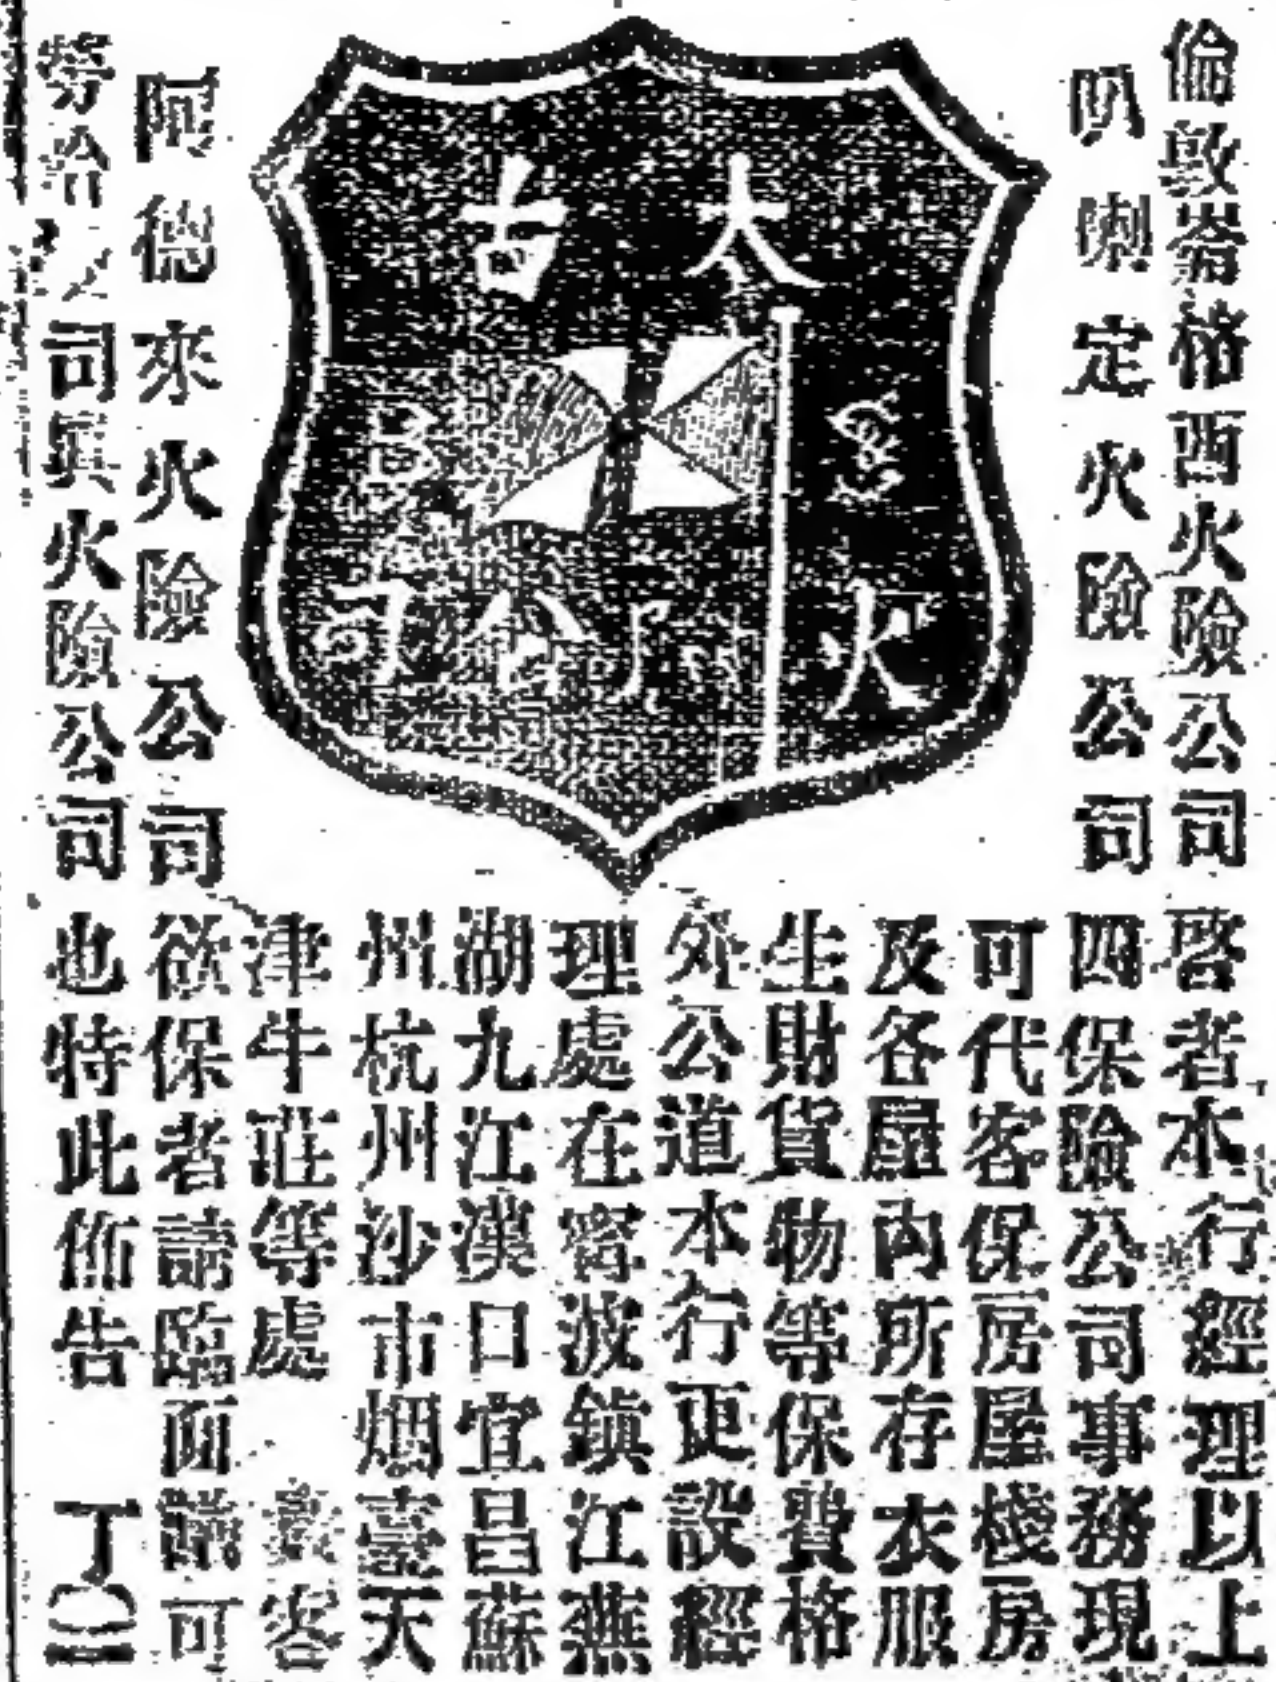 倫敦崙格西火險公司
叭喇定火險公司
太古
火 公司
阿德來火險公司
司 火險公司
啓者本行經理以上
四保險公司事務現
可代客保房屋棧房
及各屋內所存衣服
生財貨物等保費格
外公道本行更設經
理處在甯波鎮江蕪
湖九江漢口宜昌蘇
州杭州沙市烟臺天
津牛莊等處 貴客
欲保者請臨面議可
也特此佈告 丁